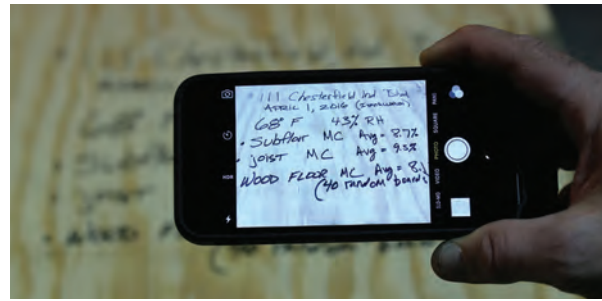 111 Chesterfield Ind Blvd
APRIL 1, 2016
68° F 43% RH
• Subfloor MC Avg = 8.7%
• joist MC Avg = 9.5%
WOOD FLOOR MC Avg = 8.1
(40 random boards
HDR
PANO
SQUARE
PHOTO
VIDEO
SLO-MO